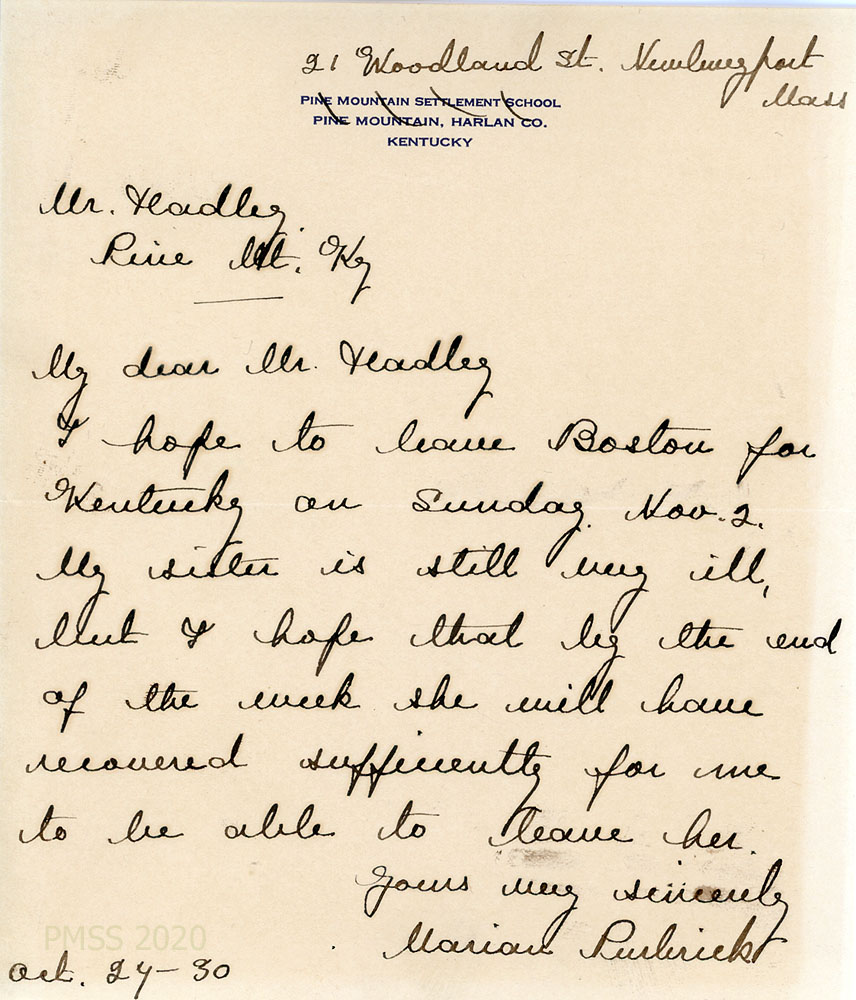 21 Woodland St. Newburyport
Mass
PINE MOUNTAIN SETTLEMENT SCHOOL
PINE MOUNTAIN, HARLAN CO.
KENTUCKY
Mr. Hadley
Pine Mt. Ky
My dear Mr. Hadley
I hope to leave Boston for
Kentucky on Sunday Nov. 2.
My sister is still very ill,
but I hope that by the end
of the week she will have
recovered sufficiently for me
to be able to leave her.
Yours very sincerely
Marian
PMSS 2020
Oct. 27-30